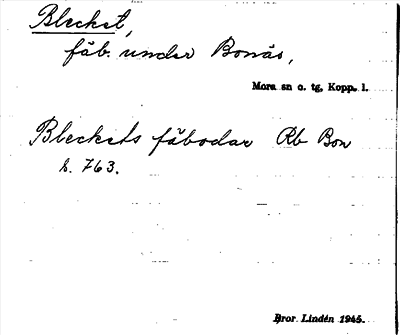 Blecket,
fäb. under Bonäs,
Mora sn o. tg, Kopp. l.
Bleckets fäbodar Rb Bon
h. 763.
Bror Lindén 1945.